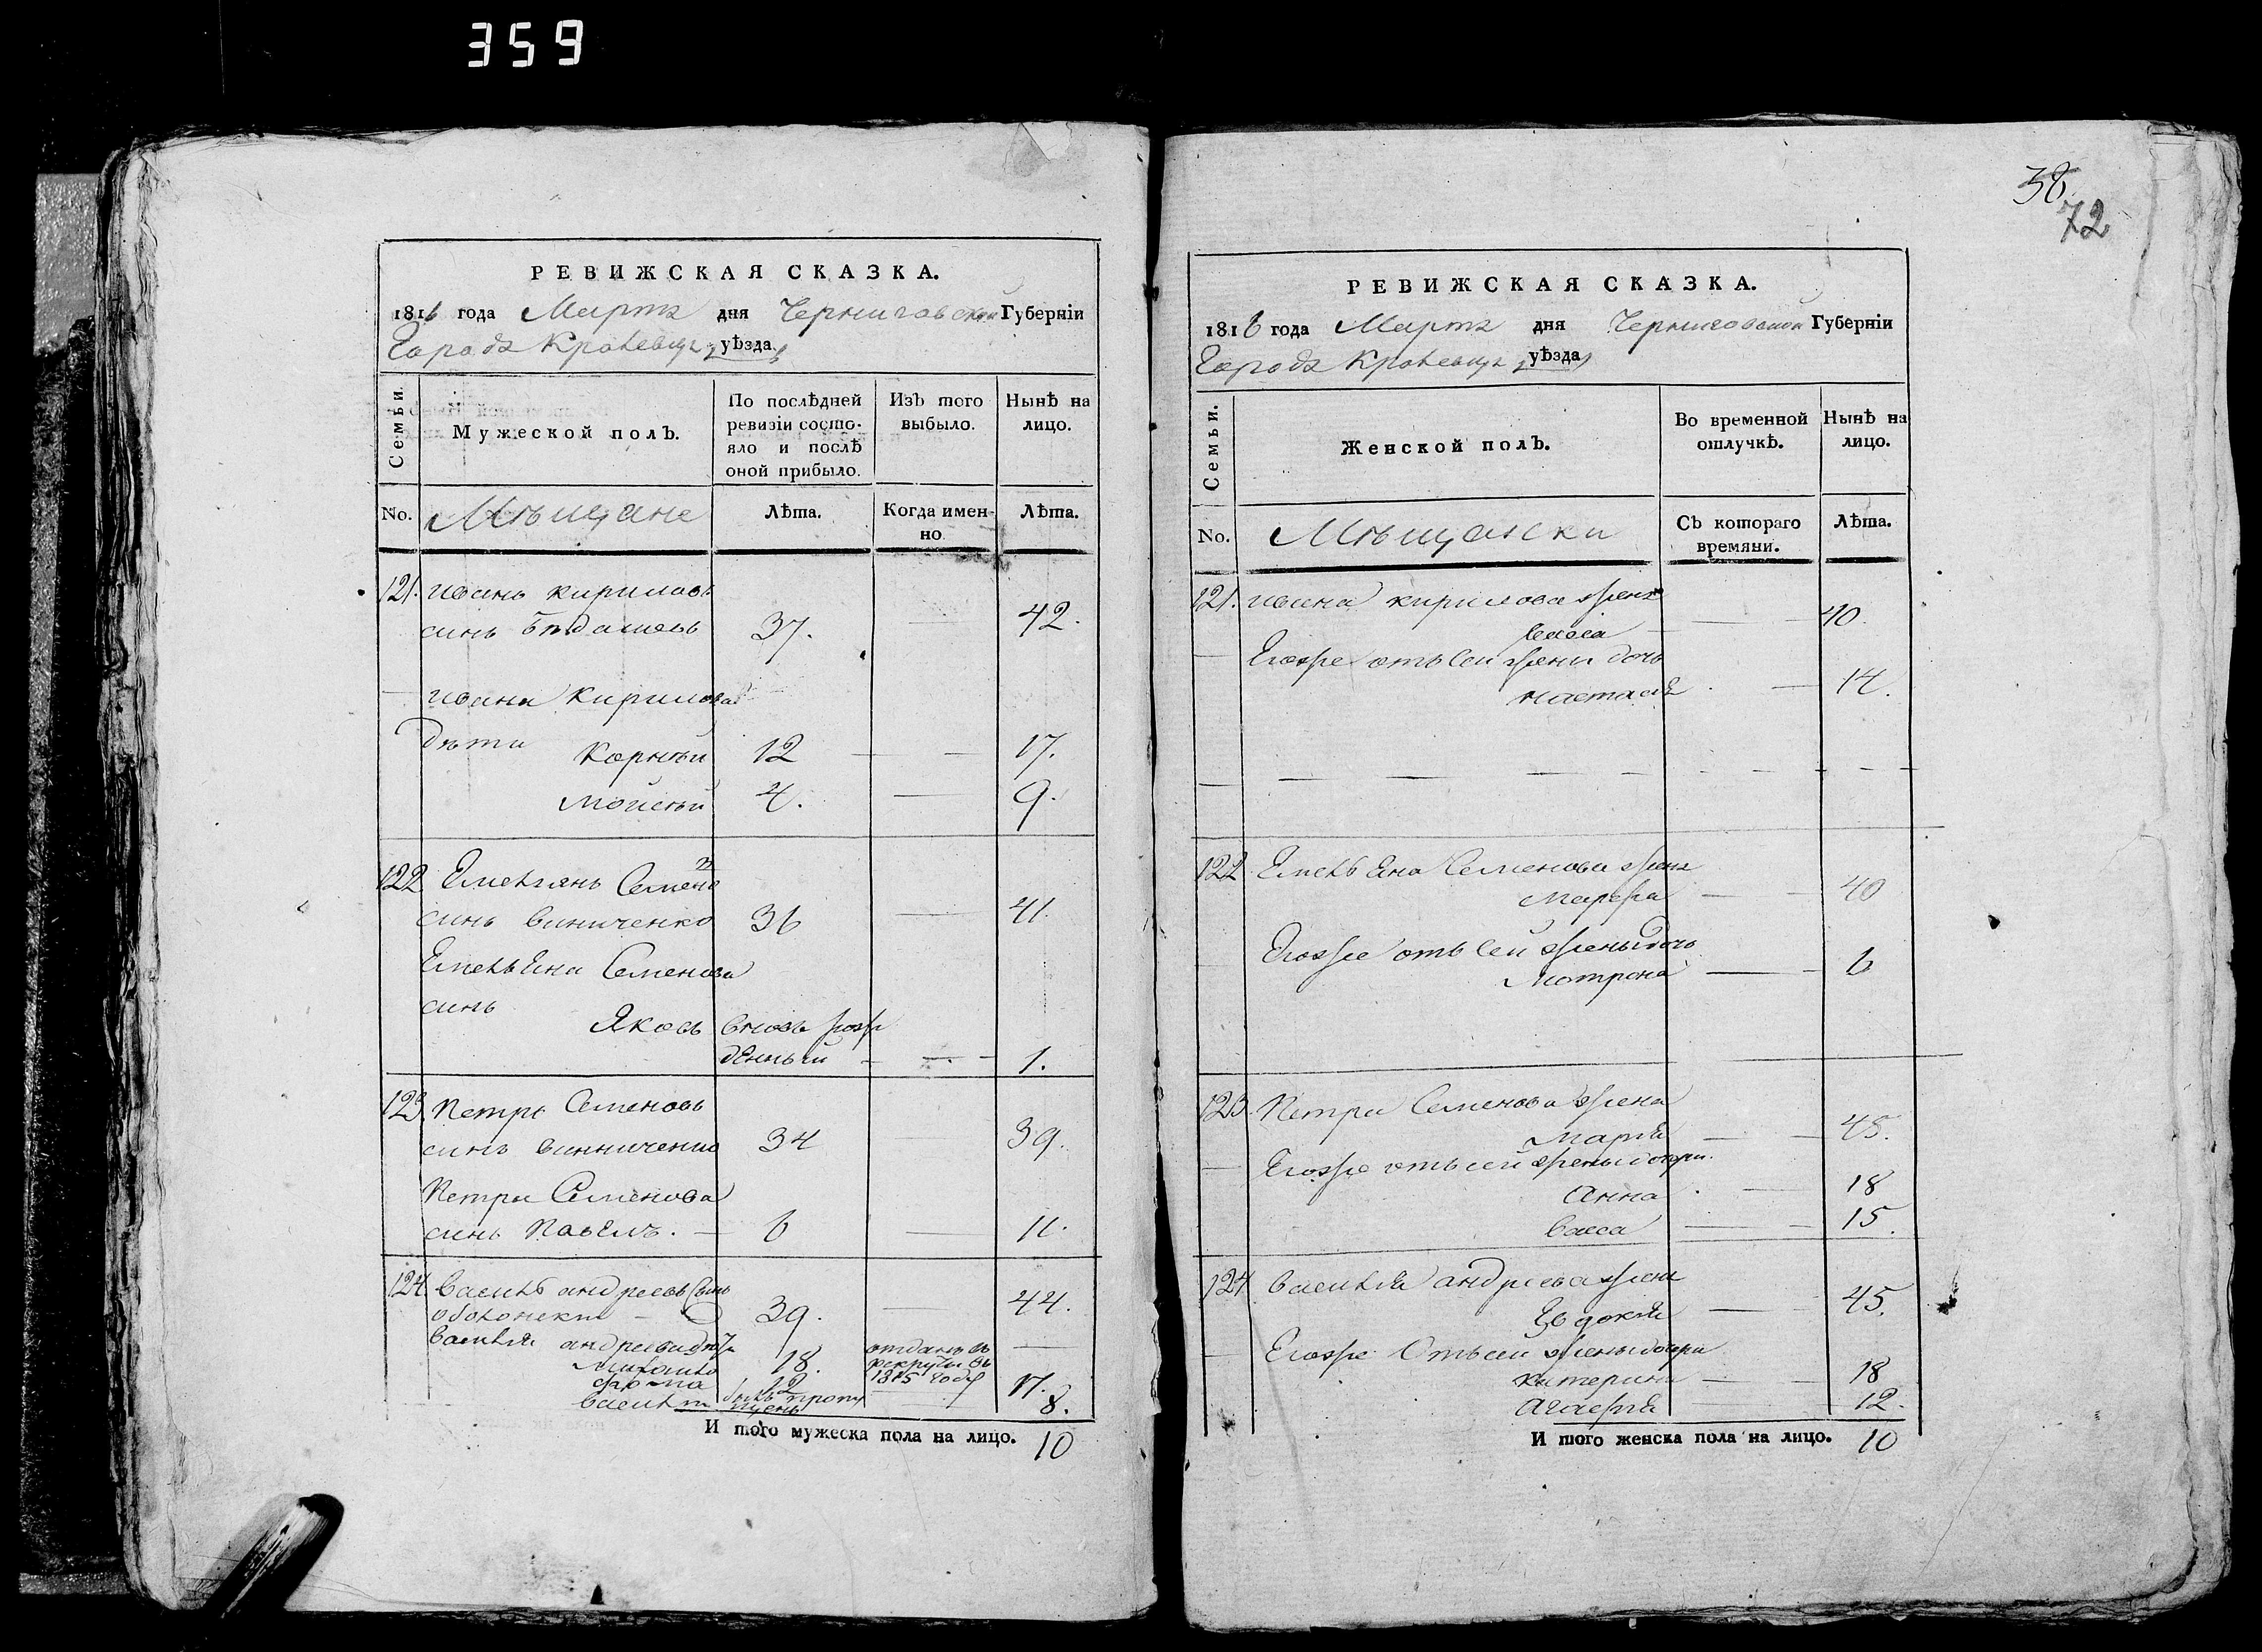 359
РЕВИЖСКАЯ СКАЗКА.
1816 года Марта дня Черниговской Губерніи
Города Кролевца уѣзда
Семьи.
Мужеской полъ.
По послѣдней ревизіи состояло и послѣ оной прибыло.
Изъ того выбыло.
Нынѣ на лицо.
No. Мѣщане Лѣта. Когда именно Лѣта.
121. иванъ кириловъ
синъ 37. 42.
ивана Кирилова
дѣти Корнѣй 12 17.
мойсѣй 4. 9.
122 Емельянъ Семенов
синъ виниченко 36 41.
Емельяна Семенова
синъ
Яковъ вновь рож
денный 1.
123. Петръ Семеновъ
синъ винниченко 34 39.
Петра Семенова
синъ Павелъ. 6 11.
124. василь андреевъ синъ
оболонскій 39. 44.
василія андреева дѣти
18. отданъ въ рекруты въ 1815 году
12 17.
василій былъ пропущенъ 8.
И того мужеска пола на лицо. 10
38
72
РЕВИЖСКАЯ СКАЗКА.
1816 года Марта дня Черниговской Губерніи
Города Кролевца уѣзда
Семьи.
Женской полъ.
Во временной отлучкѣ.
Нынѣ на лицо.
No. Мѣщански Съ котораго времяни. Лѣта.
121. ивана кирилова жена
40.
Егоже отъ сей жени дочь
настасія 14.
122 Емельяна Семенова жена
Марфа 40
Егоже отъ сей жены дочь
Мотрона 6
123. Петра Семенова жена
Марія 45.
Егоже отъ сей жены дочери.
Анна 18
васса 15.
124 василія андреева жена
Евдокія 45.
Егоже Отъ сей жены дочери
катерина 18
Агафія 12.
И того женска пола на лицо. 10